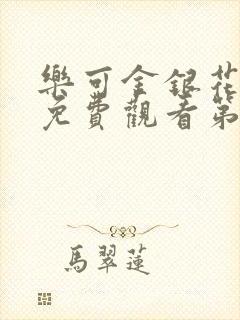 樂可金銀花
免費觀看第
馬翠蓮